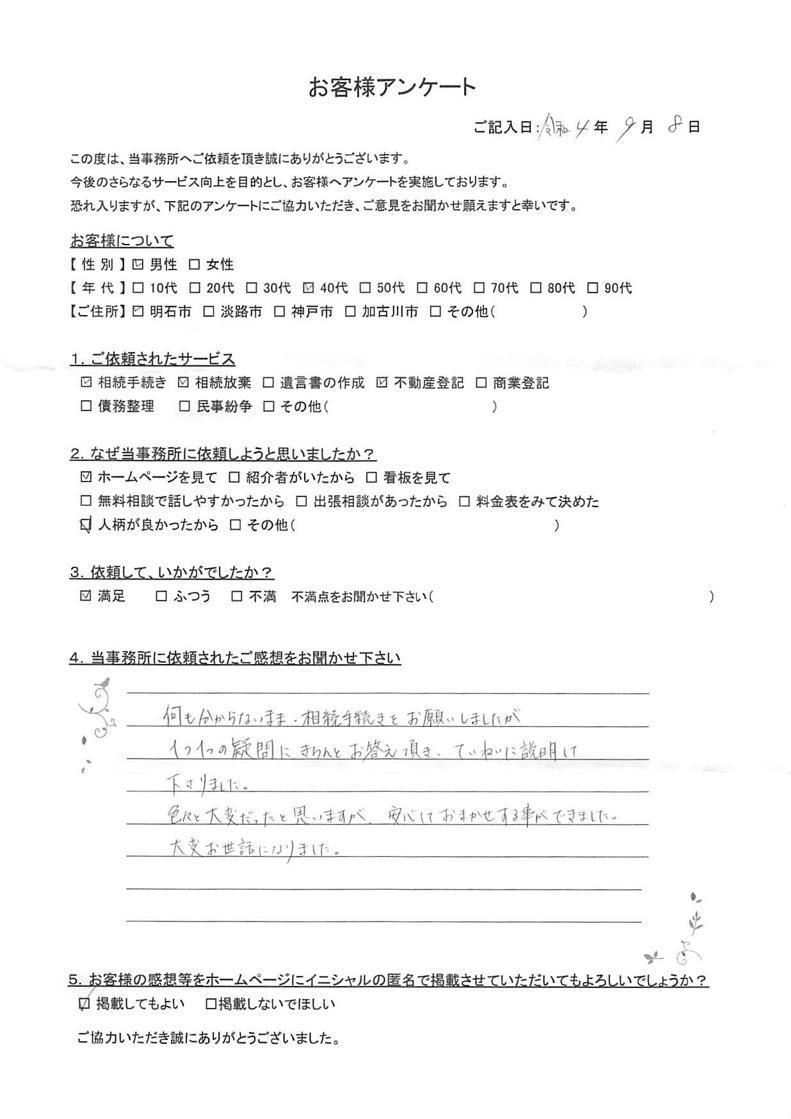 お客様アンケート
ご記入日:令和4年 9月 8日
この度は、当事務所へご依頼を頂き誠にありがとうございます。
今後のさらなるサービス向上を目的とし、お客様へアンケートを実施しております。
恐れ入りますが、下記のアンケートにご協力いただき、ご意見をお聞かせ願えますと幸いです。
お客様について
【 性 別 】☑ 男性 □ 女性
【 年 代 】□ 10代 □ 20代 □ 30代 ☑ 40代 □ 50代 □ 60代 □ 70代 □ 80代 □ 90代
【ご住所】☑ 明石市 □ 淡路市 □ 神戸市 □ 加古川市 □ その他( )
1. ご依頼されたサービス
☑ 相続手続き ☑ 相続放棄 □ 遺言書の作成 ☑ 不動産登記 □ 商業登記
□ 債務整理 □ 民事紛争 □ その他( )
2. なぜ当事務所に依頼しようと思いましたか?
☑ ホームページを見て □ 紹介者がいたから □ 看板を見て
□ 無料相談で話しやすかったから □ 出張相談があったから □ 料金表をみて決めた
☑ 人柄が良かったから □ その他( )
3. 依頼して、いかがでしたか?
☑ 満足 □ ふつう □ 不満 不満点をお聞かせ下さい( )
4. 当事務所に依頼されたご感想をお聞かせ下さい
何も分からないまま、相続手続きをお願いしましたが
1つ1つの疑問にきちんとお答え頂き、ていねいに説明して
下さりました。
色々と大変だったと思いますが、安心しておまかせする事ができました。
大変お世話になりました。
5. お客様の感想等をホームページにイニシャルの匿名で掲載させていただいてもよろしいでしょうか?
☑ 掲載してもよい □掲載しないでほしい
ご協力いただき誠にありがとうございました。